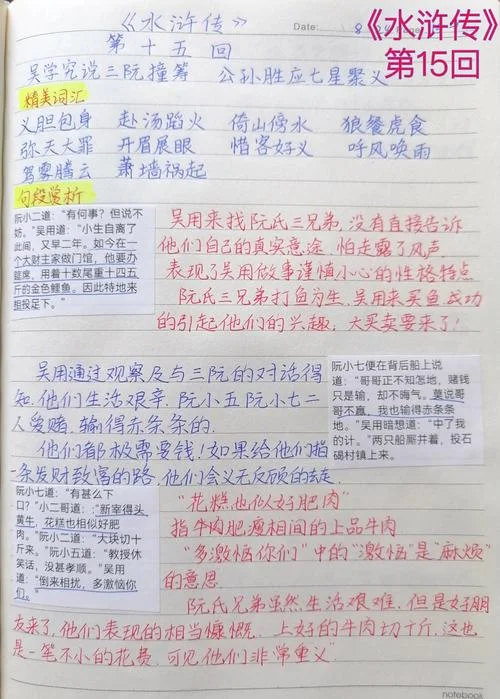 《水浒传》
Date:
《水浒传》
第15回
第十五回
吴学究说三阮撞筹 公孙胜应七星聚义
精美词汇
义胆包身 赴汤蹈火 倚山傍水 狼餐虎食
弥天大罪 开眉展眼 惜客好义 呼风唤雨
驾雾腾云 萧墙祸起
句段赏析
阮小二道：“有何事？但说不
妨。”吴用道：“小生自离了
此间，又早二年。如今在一
个大财主家做门馆，他要办
筵席，用着十数尾重十四五
斤的金色鲤鱼。因此特地来
相投足下。”
吴用来找阮氏三兄弟，没有直接告诉
他们自己的真实意途，怕走露了风声
表现了吴用做事谨慎小心的性格特点
阮氏三兄弟打鱼为生，吴用来买鱼，成功
的引起他们的兴趣，大买卖要来了！
吴用通过观察及与三阮的对话得
知，他们生活艰辛，阮小五阮小七二
人爱赌，输得赤条条的。
他们都极需要钱！如果给他们指
一条发财致富的路，他们会义无反顾的去走
阮小七便在背后船上说
道：“哥哥正不知怎地，赌钱
只是输，却不晦气。莫说哥
哥不赢，我也输得赤条条
地。”吴用暗想道：“中了我
的计。”两只船厮并着，投石
碣村镇上来。
阮小七道：“有甚么下
口？”小二哥道：“新宰得头
黄牛，花糕也相似好肥
肉。”阮小二道：“大块切十
斤来。”阮小五道：“教授休
笑话，没甚孝顺。”吴用
道：“倒来相扰，多激恼你
们。”
“花糕也似好肥肉”
指牛肉肥瘦相间的上品牛肉
“多激恼你们”中的“激恼”是“麻烦”
的意思
阮氏兄弟虽然生活艰难，但是好朋
友来了，他们表现的相当慷慨，上好的牛肉切十斤，这也
是一笔不小的花费，可见他们非常重义
notebook